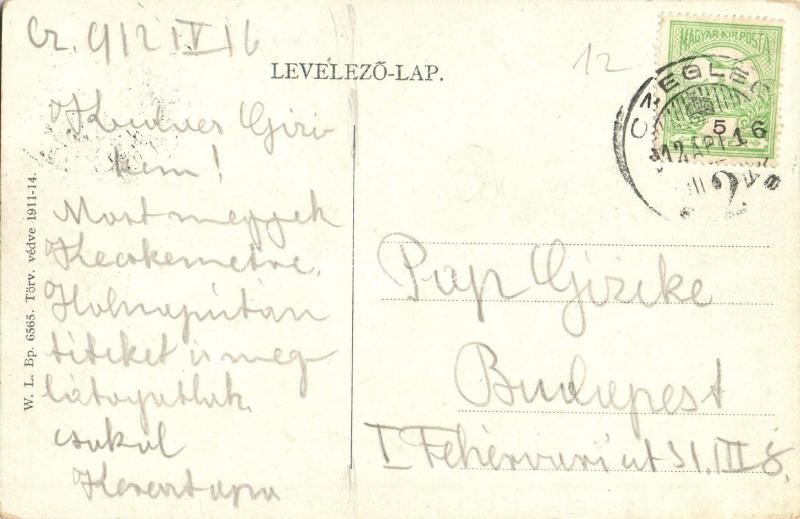 Cz. 912 IV 16
LEVELEZŐ-LAP.
12
MAGYAR KIR. POSTA
5
CZEGLÉD
912 APR 16
2
Kedves Gizi-
kém!
Most megyek
Kecskemétre.
Holnapután
titeket is meg-
látogatlak.
csókol
Keresztapa
Pap Gizike
Budapest
I Fehérvári út 31. III 8.
W. L. Bp. 6565. Törv. védve 1911-14.